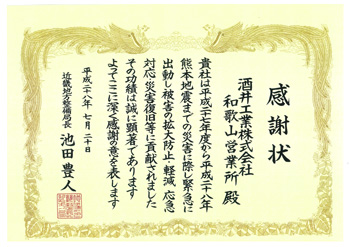 感謝状
酒井工業株式会社
和歌山営業所 殿
貴社は平成二十七年度から平成二十八年
熊本地震までの災害に際し緊急に
出動し被害の拡大防止・軽減、応急
対応、災害復旧等に貢献されました
その功績は誠に顕著であります
よってここに深く感謝の意を表します
平成二十八年 七月 二十日
近畿地方整備局長 池田豊人